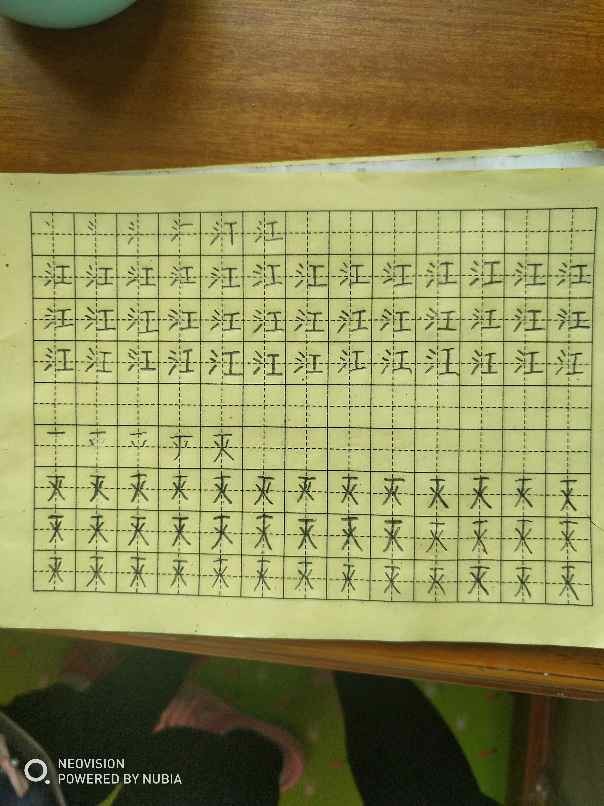 丶 冫 氵 汀 江
江江江江江江江江江江江江江
江江江江江江江江江江江江江
江江江江江江江江江江江江江
一 平 来
来来来来来来来来来来来来来
来来来来来来来来来来来来来
来来来来来来来来来来来来来
NEOVISION
POWERED BY NUBIA